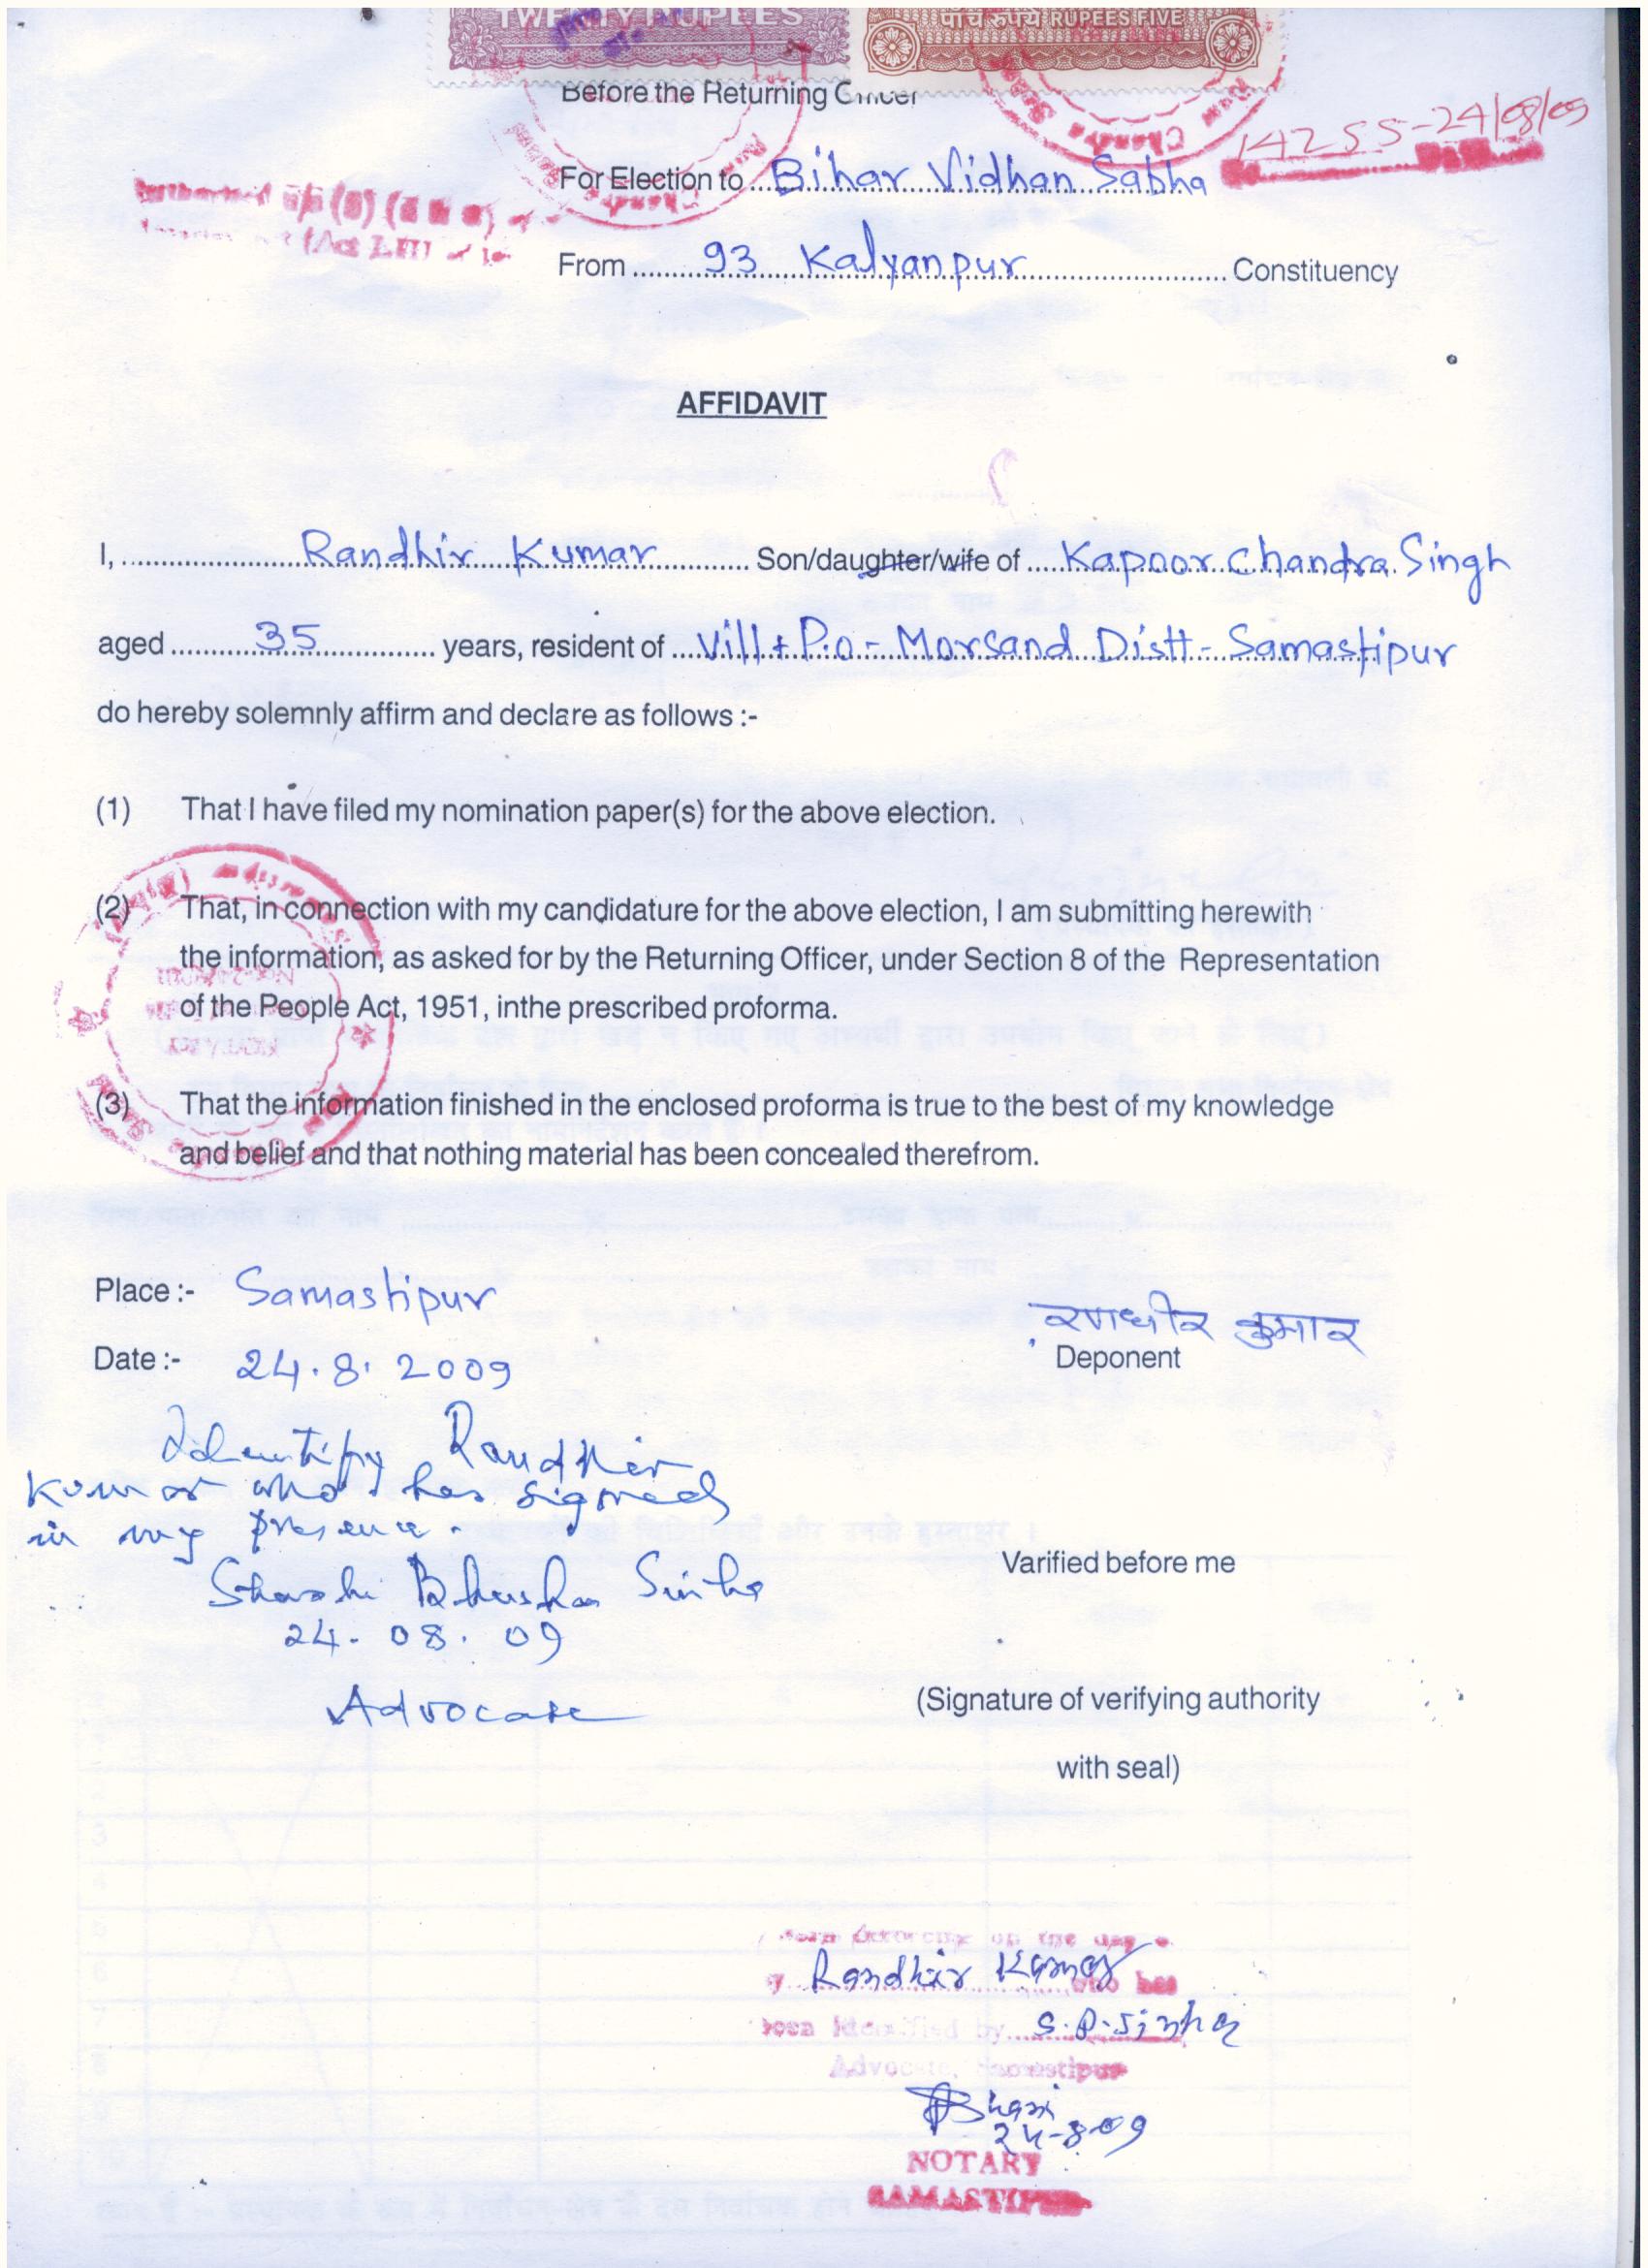 TWENTY RUPEES
पाँच रुपये RUPEES FIVE
Before the Returning Officer
14255-24/08/09
For Election to Bihar Vidhan Sabha
From 93 Kalyanpur Constituency
AFFIDAVIT
I, Randhir Kumar Son/daughter/wife of Kapoor Chandra Singh
aged 35 years, resident of Vill+P.o- Morsand Distt- Samastipur
do hereby solemnly affirm and declare as follows :-
(1) That I have filed my nomination paper(s) for the above election.
(2) That, in connection with my candidature for the above election, I am submitting herewith
the information, as asked for by the Returning Officer, under Section 8 of the Representation
of the People Act, 1951, inthe prescribed proforma.
(3) That the information finished in the enclosed proforma is true to the best of my knowledge
and belief and that nothing material has been concealed therefrom.
Place :- Samastipur
रणधीर कुमार
Date :- 24.8.2009
Deponent
Identify Randhir
Kumar who has signed
in my presence.
Shashi Bhushan Sinha
24.08.09
Advocate
Varified before me
(Signature of verifying authority
with seal)
Randhir Kumar who has
been identified by S.B.Sinha
Advocate, Samastipur
24-8-09
NOTARY
SAMASTIPUR